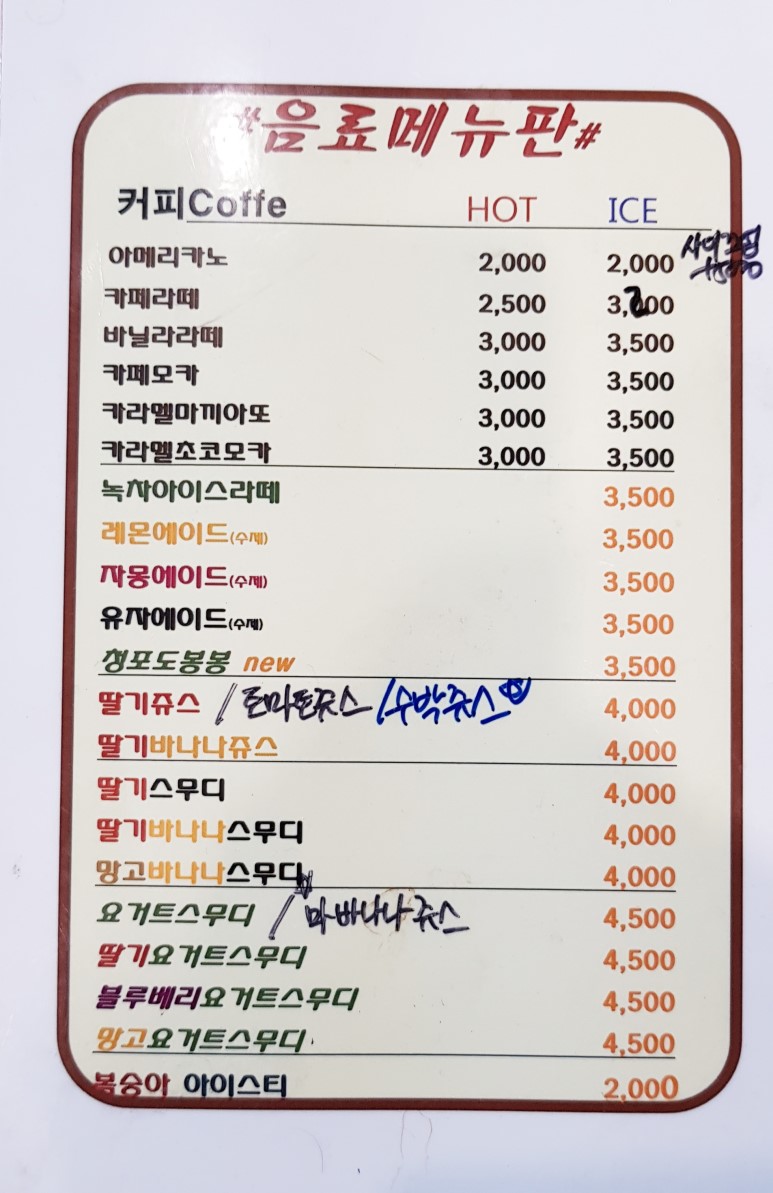 #음료메뉴판#
커피Coffe HOT ICE
아메리카노 2,000 2,000 사이즈업
카페라떼 2,500 3,200
바닐라라떼 3,000 3,500
카페모카 3,000 3,500
카라멜마끼아또 3,000 3,500
카라멜초코모카 3,000 3,500
녹차아이스라떼 3,500
레몬에이드(수제) 3,500
자몽에이드(수제) 3,500
유자에이드(수제) 3,500
청포도봉봉 new 3,500
딸기쥬스 / 토마토쥬스 /수박쥬스 4,000
딸기바나나쥬스 4,000
딸기스무디 4,000
딸기바나나스무디 4,000
망고바나나스무디 4,000
요거트스무디 / 마·바나나쥬스 4,500
딸기요거트스무디 4,500
블루베리요거트스무디 4,500
망고요거트스무디 4,500
복숭아 아이스티 2,000